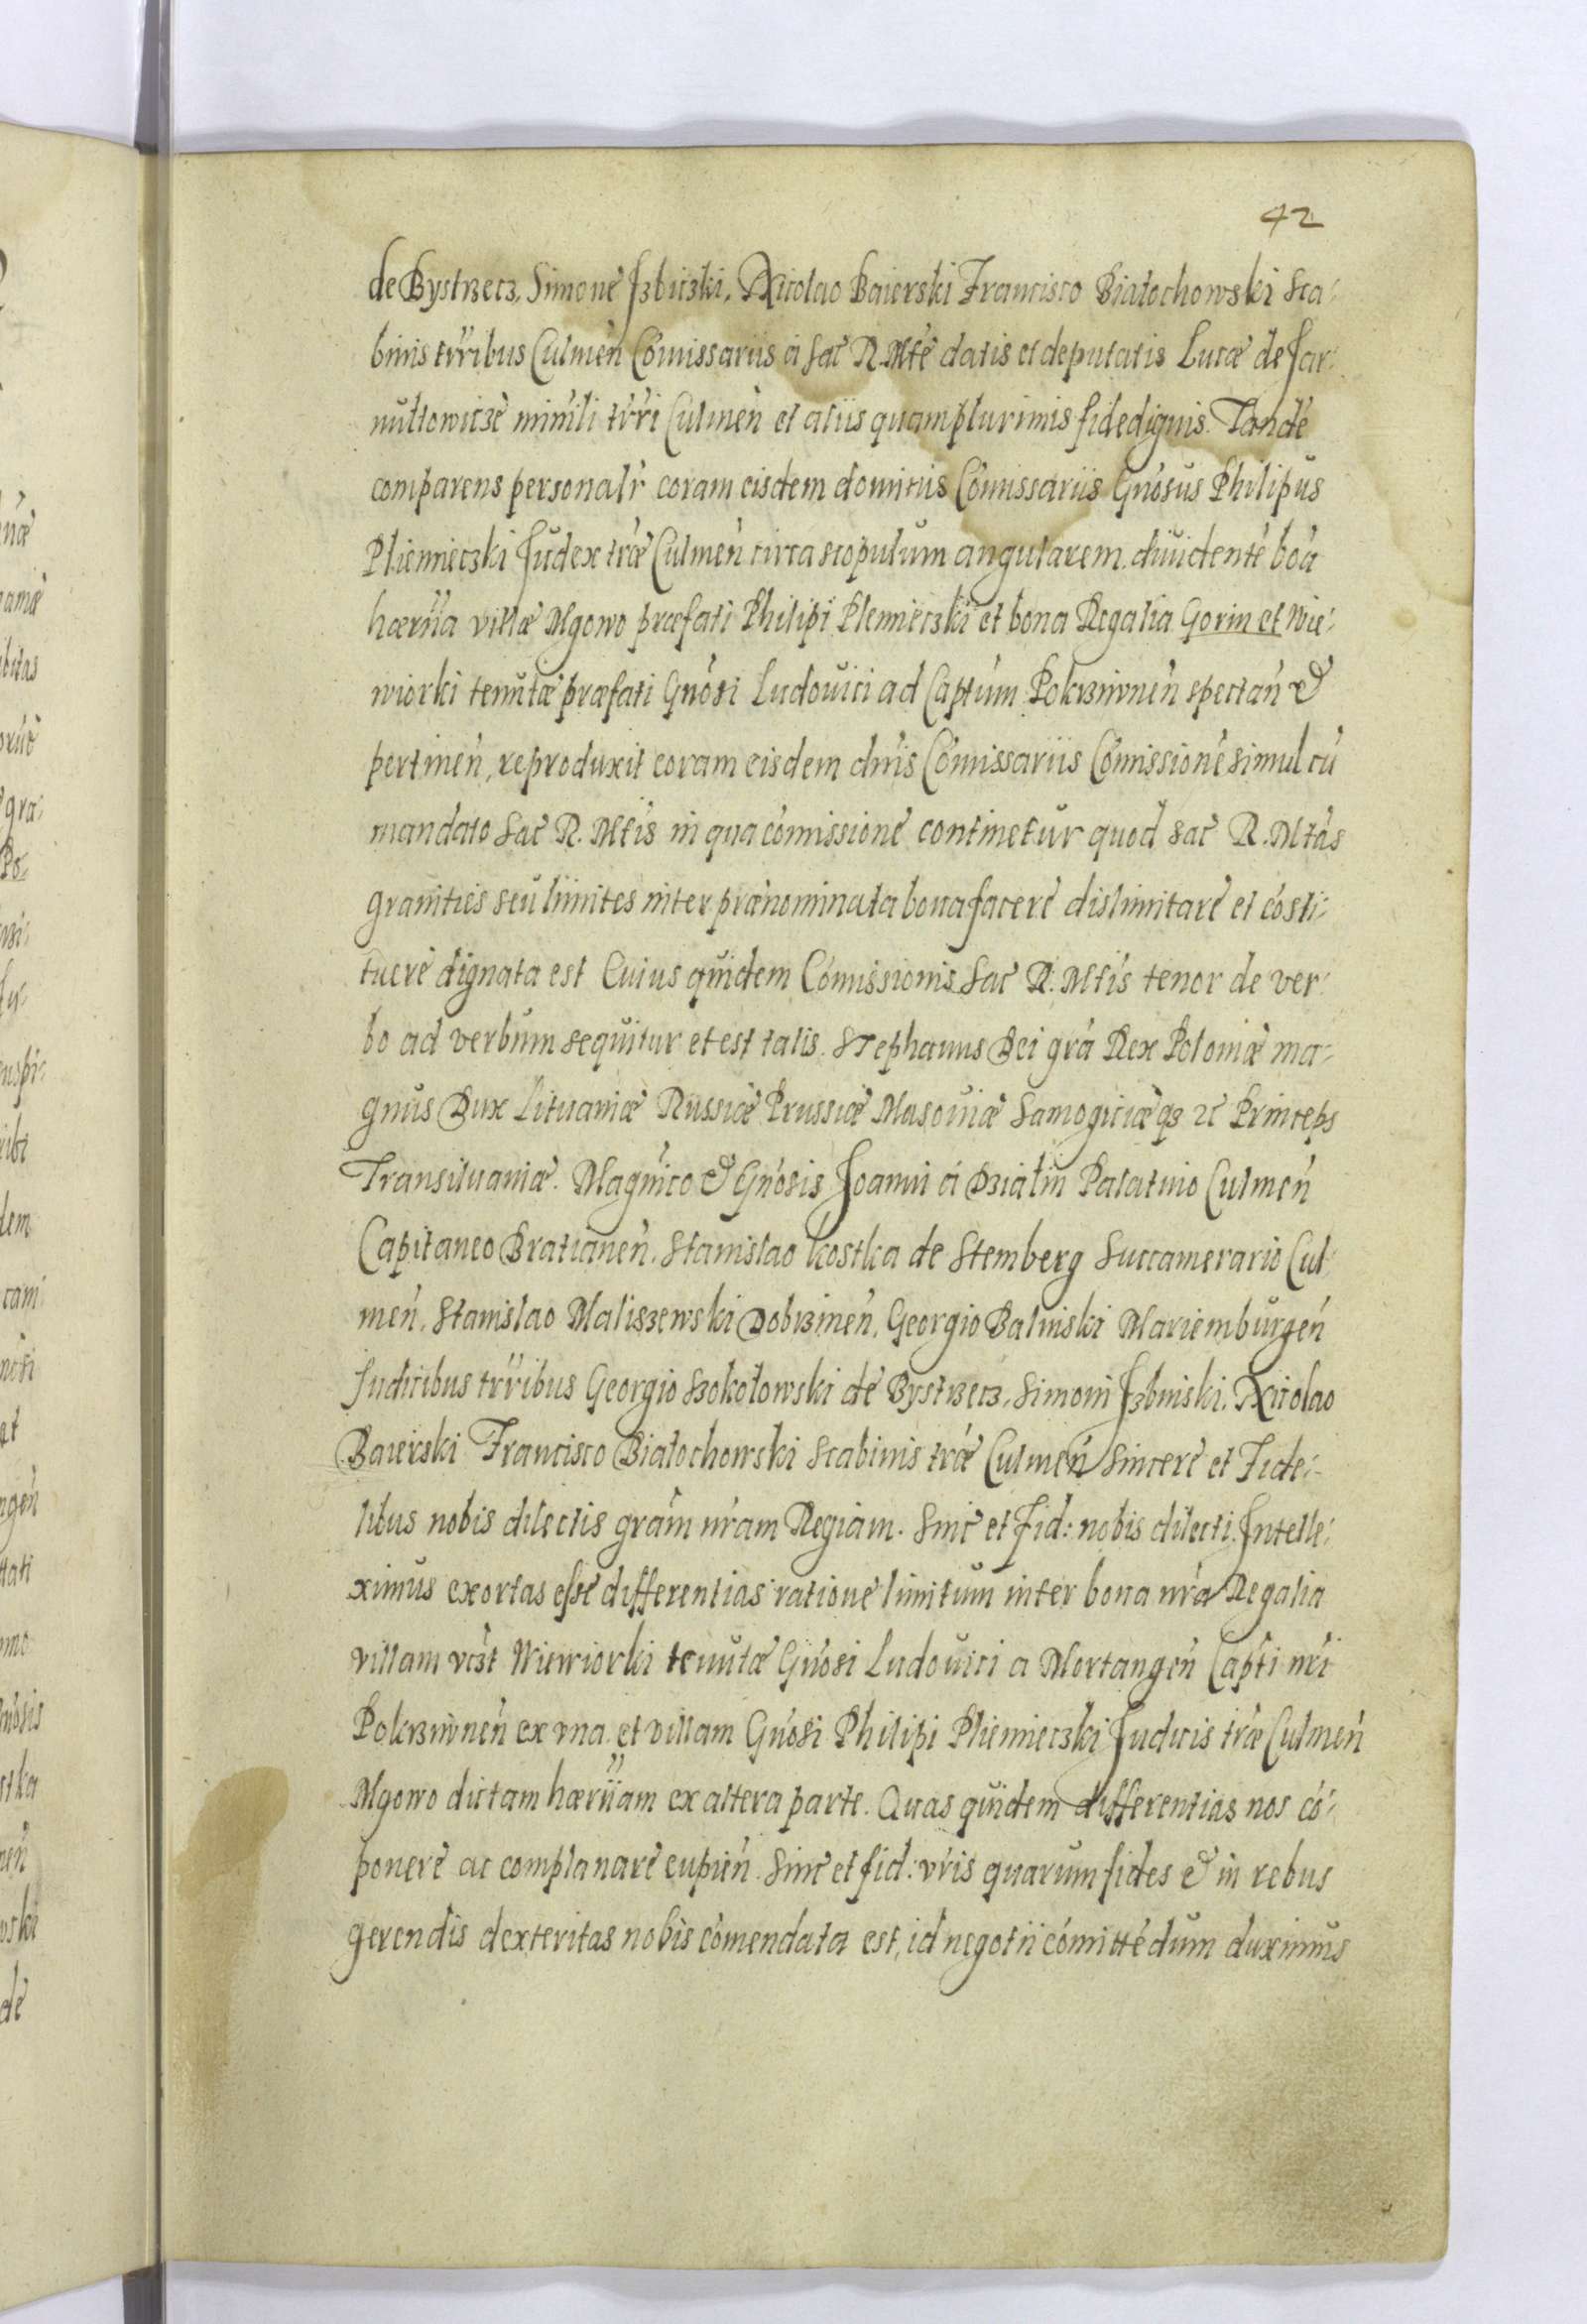 42
de Bystrzecz, Simone Jzbiczki, Nicolao Baierski Francisco Białochowski Sca-
binis trribus Culmen̄ Com̄issariis a Sac̄ R. Mte datis et deputatis Lucæ de Jar-
nułtowicze minrli trri Culmen̄ et aliis quamplurimis fidedignis. Tandē
comparens personalr coram eisdem dominis Com̄issariis Gn̄osus Philipus
Pliemieczki Judex træ Culmen̄ circa scopulum angularem diuidentē bōa
hæriia villæ Mgowo præfati Philipi Plemieczki et bona Regalia Gorin et Wie-
wiorki tenutæ præfati Gn̄osi Ludouici ad Captum Pokrziwnen̄ spectan̄ &
pertinen̄, reproduxit coram eisdem dnis Com̄issariis Com̄issionē simul cū
mandato Sac̄ R. Mtis in qua com̄issione continetur quod Sac̄ R. Mtas
granicies seu limites inter prænominata bona facere dislimitare et cōsti-
tuere dignata est Cuius quidem Com̄issionis Sac̄ R. Mtis tenor de ver-
bo ad verbum sequitur et est talis. Stephanus Dei grā Rex Poloniæ ma-
gnus Dux Lituaniæ Russiæ Prussiæ Masouiæ Samogiciæq3 2c̄ Princeps
Transiluaniæ. Magn̄ico & Gn̄osis Joanni a Dzialin Palatino Culmen̄
Capitaneo Bratianen̄. Stanislao Kostka de Stemberg Succamerario Cul-
men̄. Stanislao Maliszewski Dobrzinen̄. Georgio Balinski Mariemburgen̄
Judicibus trribus Georgio Szokołowski de Bystrzecz, Simoni Jzbinski. Nicolao
Baierski Francisco Białochowski Scabinis træ Culmen̄ Sincere et Fide-
libus nobis dilectis gram̄ nr̄am Regiam. Sinc̄ et Fid: nobis dilecti. Intelle-
ximus exortas esse differentias ratione limitum inter bona nr̄a Regalia
villam vczt Wiewiorki tenutæ Gn̄osi Ludouici a Mortangen̄ Capti nr̄i
Pokrziwnen̄ ex vna et villam Gn̄osi Philipi Pliemieczki Judicis træ Culmen̄
Mgowo dictam hæriiam ex altera parte. Quas quidem differentias nos cō-
ponere ac complanare cupien̄. Sinc̄ et fid: vr̄is quarum fides & in rebus
gerendis dexteritas nobis com̄endata est, id negotii com̄ittēdum duximus